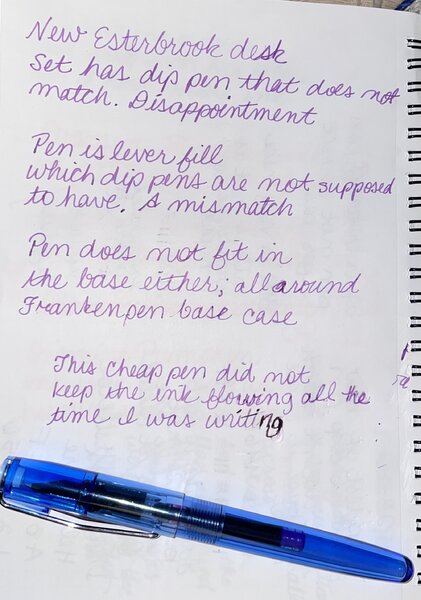 New Esterbrook desk
set has dip pen that does not
match. Disappointment
Pen is lever fill
which dip pens are not supposed
to have. A mismatch
Pen does not fit in
the base either; all around
Frankenpen base case
This cheap pen did not
keep the ink flowing all the
time I was writing